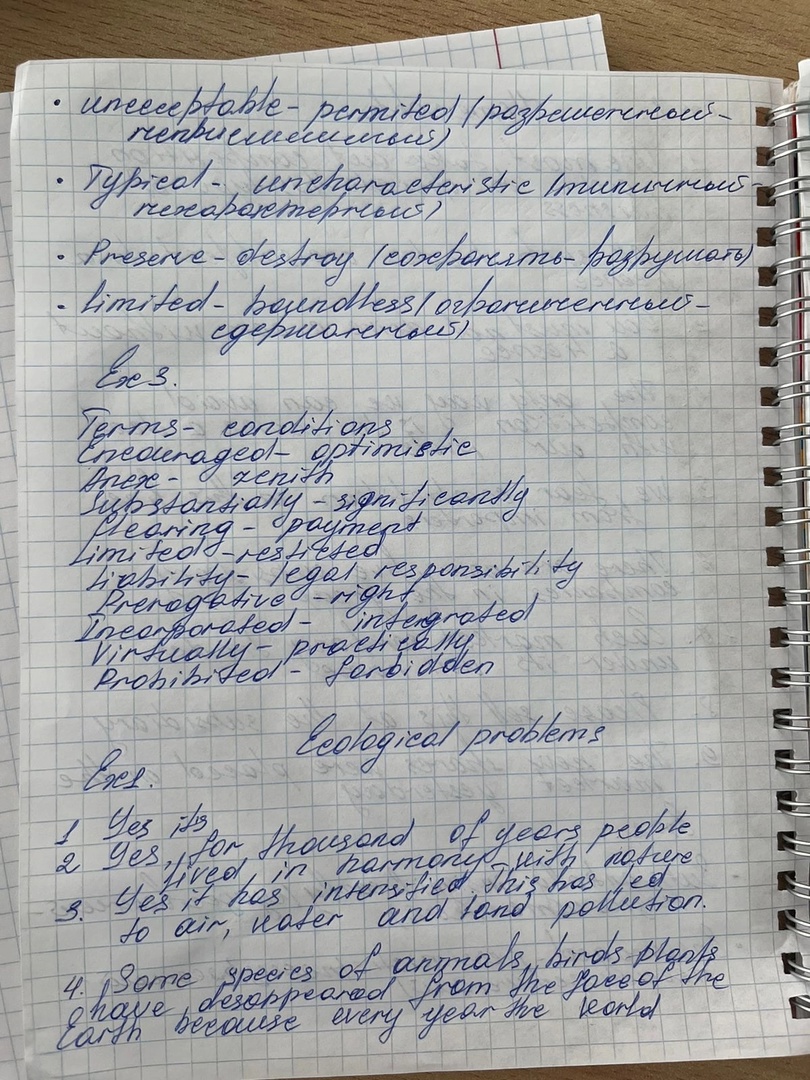 • unecceptable - permited (разрешенный-
неприемлимый)
• Typical - uncharacteristic (типичный-
нехарактерный)
• Preserve - destroy (сохранять - разрушать)
• Limited - boundless (ограниченный-
сдержанный)
Ex 3.
Terms - conditions
Encouraged - optimistic
Apex - zenith
Substantially - significantly
Clearing - payment
Limited - resticted
Liability - legal responsibility
Prerogative - right
Incorporated - intergrated
Virtually - practically
Prohibited - forbidden
Ecological problems
Ex1.
1 Yes its
2 Yes, for thousand of years people
lived in harmony with nature
3. Yes it has intensified. This has led
to air, water and land pollution.
4. Some species of animals, birds, plants
have desappeared from the face of the
Earth because every year the world